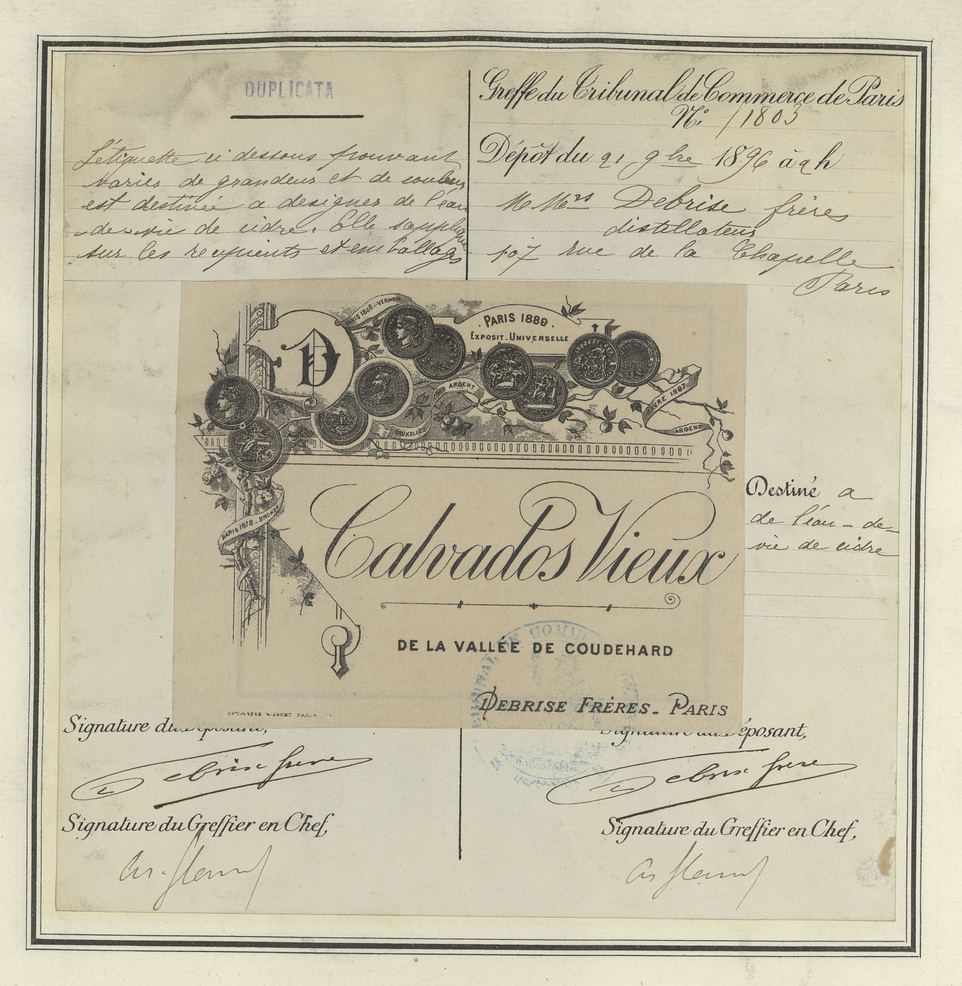 DUPLICATA
L'étiquette ci dessous pouvant
varier de grandeur et de couleur
est destinée a designer de l'eau
-de-vie de cidre. Elle s'applique
sur les recipients et emballages
Greffe du Tribunal de Commerce de Paris
N° /1803
Dépôt du 21 9bre 1896 à 2 h
M Mrs Debrise frères
distillateurs
107 rue de la Chapelle
Paris
D
PARIS 1889.
EXPOSIT. UNIVERSELLE
ARGENT
BRUXELLES
HAVRE 1887
ARGENT
PARIS 1878 - BRONZE
Calvados Vieux
DE LA VALLÉE DE COUDEHARD
DEBRISE FRÈRES - PARIS
Destiné a
de l'eau-de-
vie de cidre
Signature du Déposant,
Signature du Déposant,
Debrise frères
Debrise frères
Signature du Greffier en Chef,
Signature du Greffier en Chef,